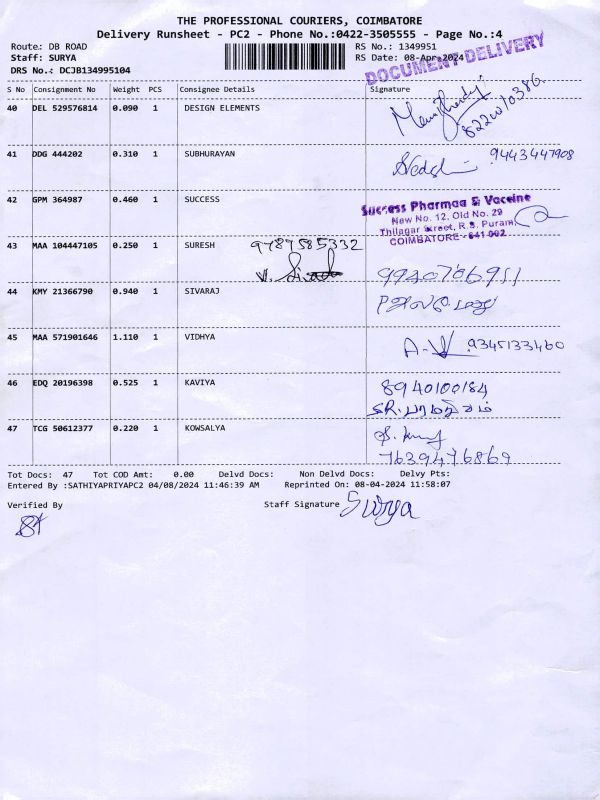 THE PROFESSIONAL COURIERS, COIMBATORE
Delivery Runsheet - PC2 - Phone No.:0422-3505555 - Page No.:4
Route: DB ROAD RS No.: 1349951
Staff: SURYA RS Date: 08-Apr-2024
DRS No.: DCJB134995104
DOCUMENT DELIVERY
S No Consignment No Weight PCS Consignee Details Signature
40 DEL 529576814 0.090 1 DESIGN ELEMENTS
41 DDG 444202 0.310 1 SUBHURAYAN 9443447908
42 GPM 364987 0.460 1 SUCCESS
Success Pharmaa & Vaccine
New No. 12, Old No. 29
Thilagar Street, R.S. Puram,
COIMBATORE - 641 002
43 MAA 104447105 0.250 1 SURESH 9787585332
44 KMY 21366790 0.940 1 SIVARAJ
45 MAA 571901646 1.110 1 VIDHYA 9345133460
46 EDQ 20196398 0.525 1 KAVIYA 8940100184
47 TCG 50612377 0.220 1 KOWSALYA
7639476869
Tot Docs: 47 Tot COD Amt: 0.00 Delvd Docs: Non Delvd Docs: Delvy Pts:
Entered By :SATHIYAPRIYAPC2 04/08/2024 11:46:39 AM Reprinted On: 08-04-2024 11:58:07
Verified By Staff Signature Surya